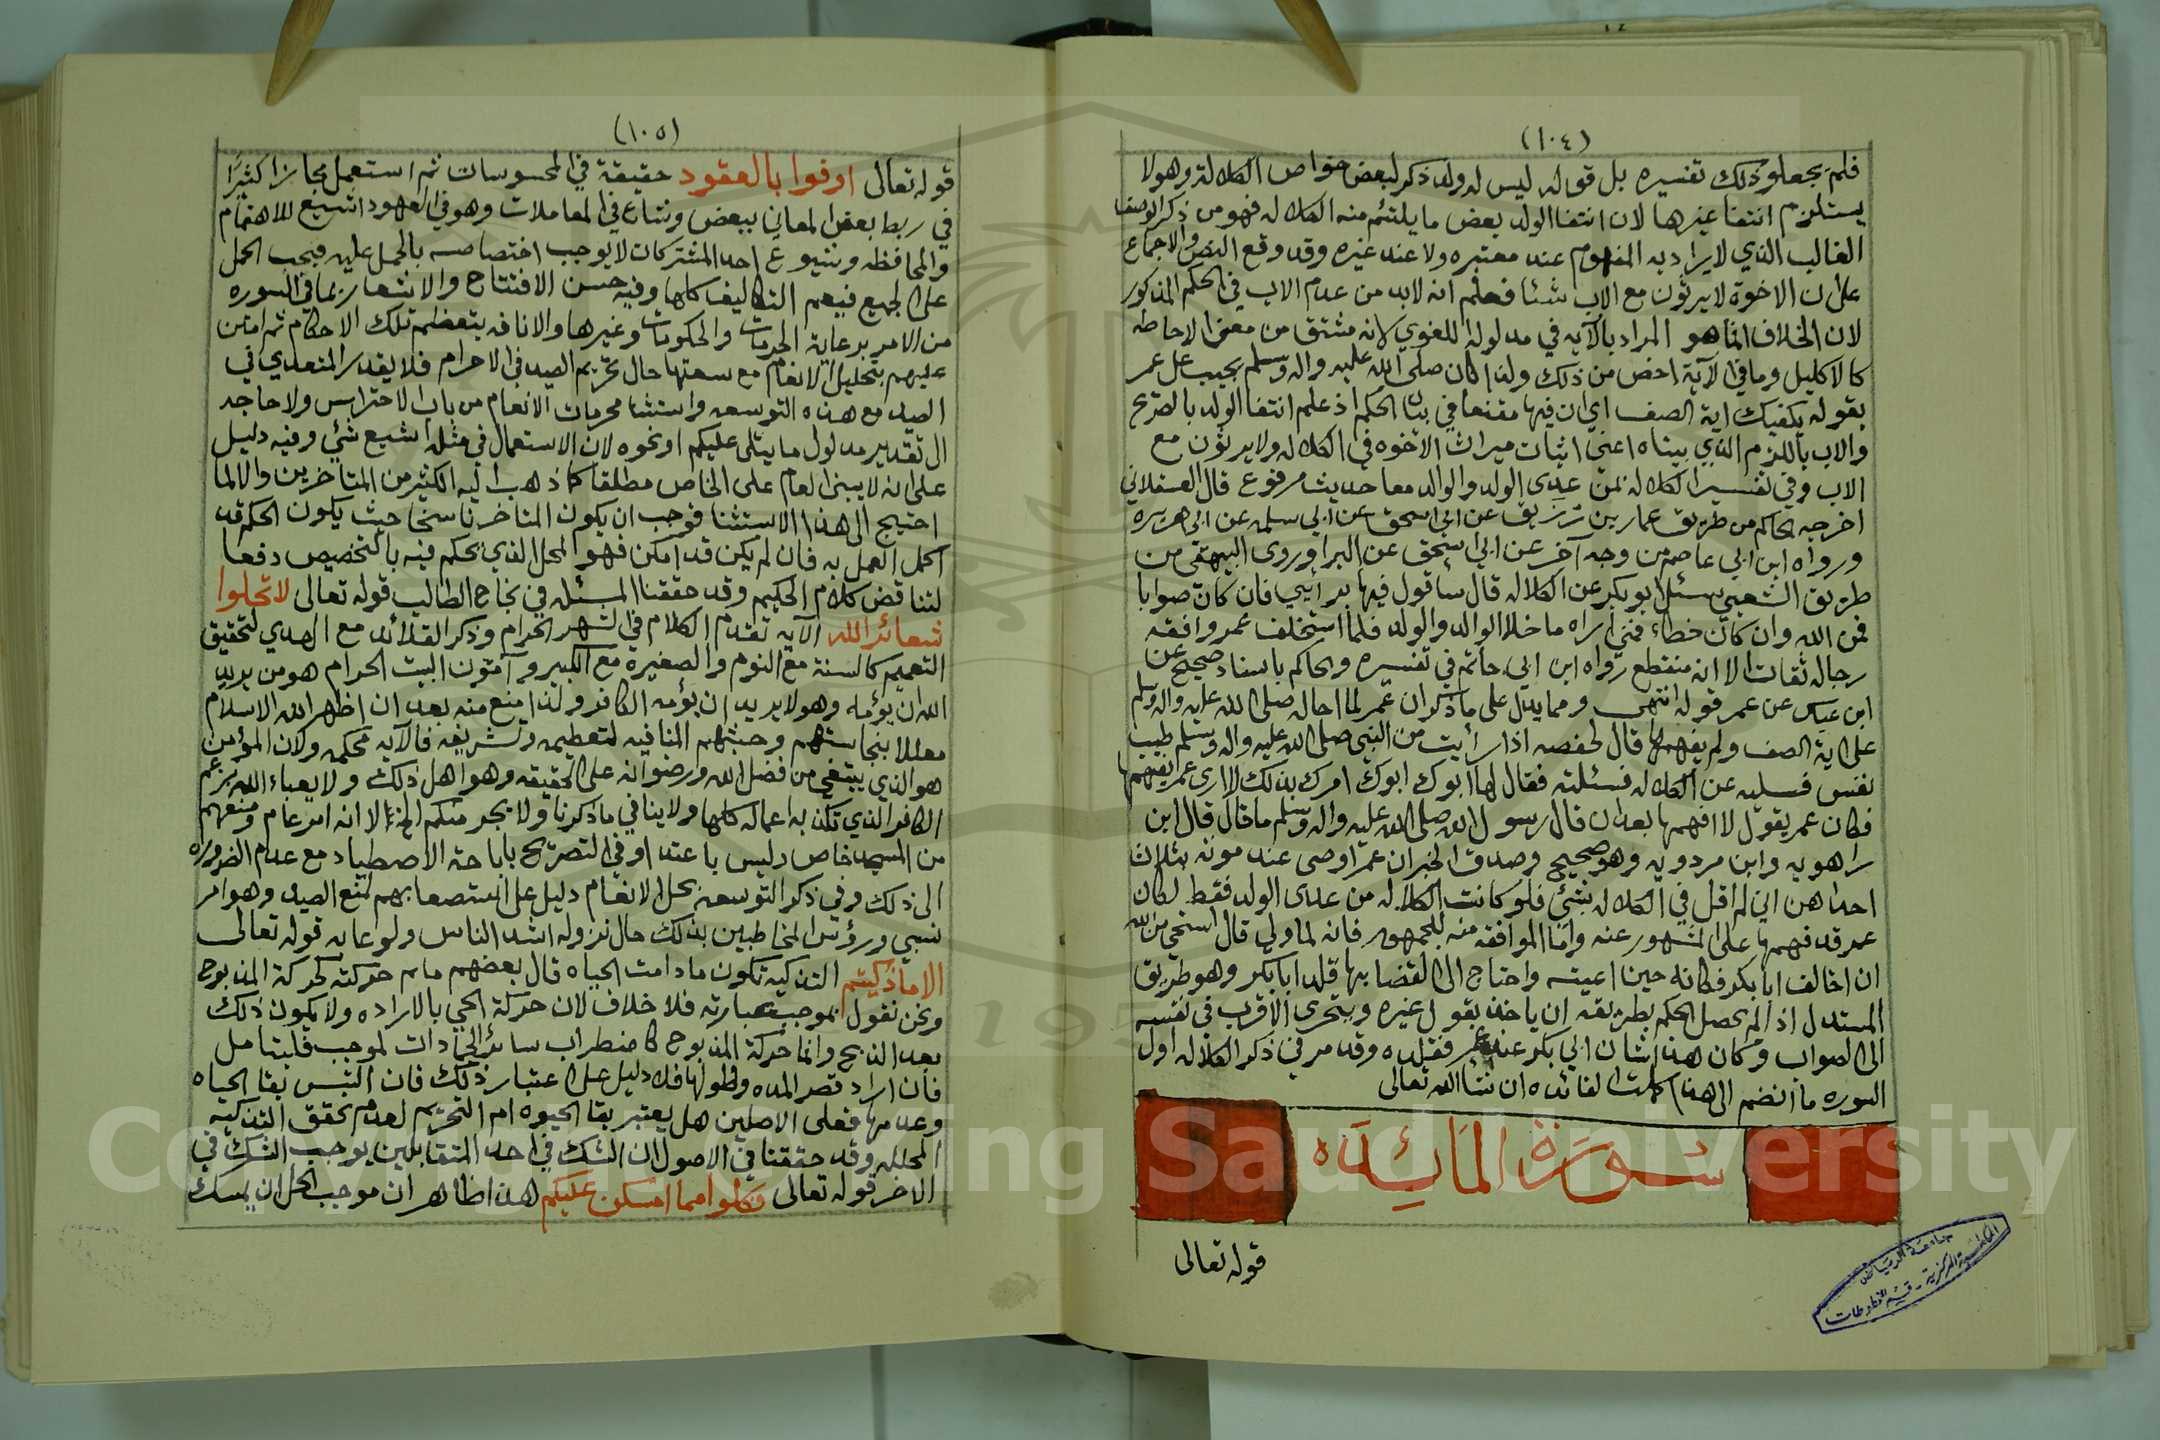 (١٠٤)
فلم يجعلو ذلك تفسيره بل قواله ليس له ولد ذكر لبعض خواص الكلالة وهو لا
يستلزم انتفا غيرها لان انتفا الولد بعض ما يلتئم منه الكلاله فهو من ذكر الوصف
الغالب الذي لا يراد به المفهوم عند معتبره ولا عند غيره وقد وقع النص والاجماع
على ان الاخوة لا يرثون مع الاب شئا فعلم انه لابد من عدم الاب في الحكم المذكور
لان الخلاف انما هو المراد بالآيه في مدلولها اللغوي لانه مشتق من معنى الاحاطه
كالاكليل وما في الآية اخص من ذلك ولذا كان صلى الله عليه واله وسلم يجيب على عمر
بقوله يكفيك اية الصف اي ان فيها مقنعا في بيان الحكم اذ علم انتفا الولد بالصريح
والاب باللزم الذي بيناه اعني اثبات ميراث الاخوه في الكلاله ولا يرثون مع
الاب وفي تفسير الكلاله بمن عدى الولد والوالد معا حديث مرفوع قال العسقلاني
اخرجه الحاكم من طريق عمار بن رزيق عن ابي اسحق عن ابي سلمه عن ابي هريره
ورواه ابن ابي عاصم من وجه آخر عن ابي اسحق عن البرا وروى البيهقي من
طريق الشعبي سئل ابو بكر عن الكلاله قال ساقول فيها برأيي فان كان صوابا
فمن الله وان كان خطاء فمني اراه ما خلا الوالد والولد فلما استخلف عمر وافقه
رجاله ثقات الا انه منقطع رواه ابن ابي حاتم في تفسيره والحاكم باسناد صحيح عن
ابن عباس عن عمر قوله انتهى ومما يدل على ما ذكر ان عمر لما احاله صلى الله عليه واله وسلم
على اية الصف ولم يفهمها قال لحفصه اذا رأيت من النبي صلى الله عليه واله وسلم طيب
نفس فسليه عن الكلاله فسئلته فقال لها ابوك ابوك امرك بذلك لا ارى عمر يفهمها
فكان عمر يقول لا افهمها بعد ان قال رسول الله صلى الله عليه واله وسلم ما قال قال ابن
راهويه وابن مردويه وهو صحيح وصدق الخبر ان عمر اوصى عند موته بثلاث
احداهن اني لم اقل في الكلاله بشئ فلو كانت الكلاله من عدى الولد فقط لكان
عمر قد فهمها على المشهور عنه واما الموافقه منه للجمهور فانه لما ولي قال استحي من الله
ان اخالف ابا بكر فكانه حين اعيته واحتاج الى القضا بها قلد ابا بكر وهو طريق
المستدل اذا لم يحصل الحكم بطريقه ان ياخذ بقول غيره ويتحرى الاقرب في نفسه
الى الصواب وكان هذا شان ابي بكر عند عمر فقلده وقد مر في ذكر الكلاله اول
السوره ما انضم الى هذا كملت الفائده ان شا الله تعالى
سورة المائده
قوله تعالى
(١٠٥)
قوله تعالى اوفوا بالعقود حقيقة في المحسوسات ثم استعمل مجازا كثيرًا
في ربط بعض المعاني ببعض وشاع في المعاملات وهو في العهود اشيع للاهتمام
والمحافظه وشيوع احد المشتركات لا يوجب اختصاصه بالحمل عليه فيجب الحمل
على الجميع فيعم التكاليف كلها وفيه حسن الافتتاح والاشعار بما في السوره
من الامر برعاية الحرمات والحكومات وغيرها والانافه بتعظيم تلك الاحكام ثم امتن
عليهم بتحليل الانعام مع سعتها حال تحريم الصيد في الاحرام فلا يقدر المتعدي في
الصيد مع هذه التوسعه واستثنا محرمات الانعام من باب الاحتراس ولا حاجه
الى تقدير مدلول ما يتلى عليكم او نحوه لان الاستعمال في مثله اشيع شئ وفيه دليل
على انه لا يبنى العام على الخاص مطلقا كما ذهب اليه الكثير من المتاخرين والا لما
احتيج الى هذا الاستثنا فوجب ان يكون المتاخر ناسخا حيث يكون الحكم قد
اكمل العمل به فان لم يكن قد امكن فهو المحل الذي يحكم فيه بالتخصيص دفعا
لتناقض كلام الحكيم وقد حققنا المسئله في نجاح الطالب قوله تعالى لا تحلوا
شعائر الله الآيه تقدم الكلام في الشهر الحرام وذكر القلائد مع الهدي لتحقيق
التعميم كالسنة مع النوم والصغيره مع الكبير وآمنون البيت الحرام هو من يريد
الله ان يؤمه وهو لا يريد ان يؤمه الكافر ولذا منع منه بعد ان اظهر الله الاسلام
معللا بنجاستهم وخبثهم المنافيه لتعظيمه وتشريفه فالآيه محكمه ولان المؤمن
هو الذي يبتغي من فضل الله ورضوانه على الحقيقه وهو اهل ذلك ولا يعباء الله بزعم
الكافر الذي تكذبه اعماله كلها ولا ينافي ما ذكرنا ولا يجرمنكم الخ الا انه امر عام ومنعهم
من المسجد خاص وليس باعتدا وفي التصريح باباحة الاصطياد مع عدم الضروره
الى ذلك وفي ذكر التوسعه بحل الانعام دليل على استصعابهم لمنع الصيد وهو امر
نسبي ورؤس المخاطبين بذلك حال نزوله اشد الناس ولوعا به قوله تعالى
الا ما ذكيتم التذكيه تكون ما دامت الحياه قال بعضهم ما لم حركته كحركة المذبوح
ونحن نقول بموجب عبارته فلا خلاف لان حركة الحي بالاراده ولا يكون ذلك
بعد الذبح وانما حركة المذبوح كاضطراب سائر الجمادات لموجب فليتامل
فان اراد قصر المده وطولها فلا دليل على اعتبار ذلك فان التبس بقا الحياه
وعدمها فعلى الاصلين هل يعتبر بقا الحيوه ام التحريم لعدم تحقق التذكيه
المحلله وقد حققنا في الاصول ان الشك في احد المتقابلين يوجب الشك في
الاخر قوله تعالى فكلوا مما امسكن عليكم هذا ظاهر ان موجب الحل ان يمسك
جامعة الرياض
المكتبة المركزية - قسم المخطوطات
King Saud University